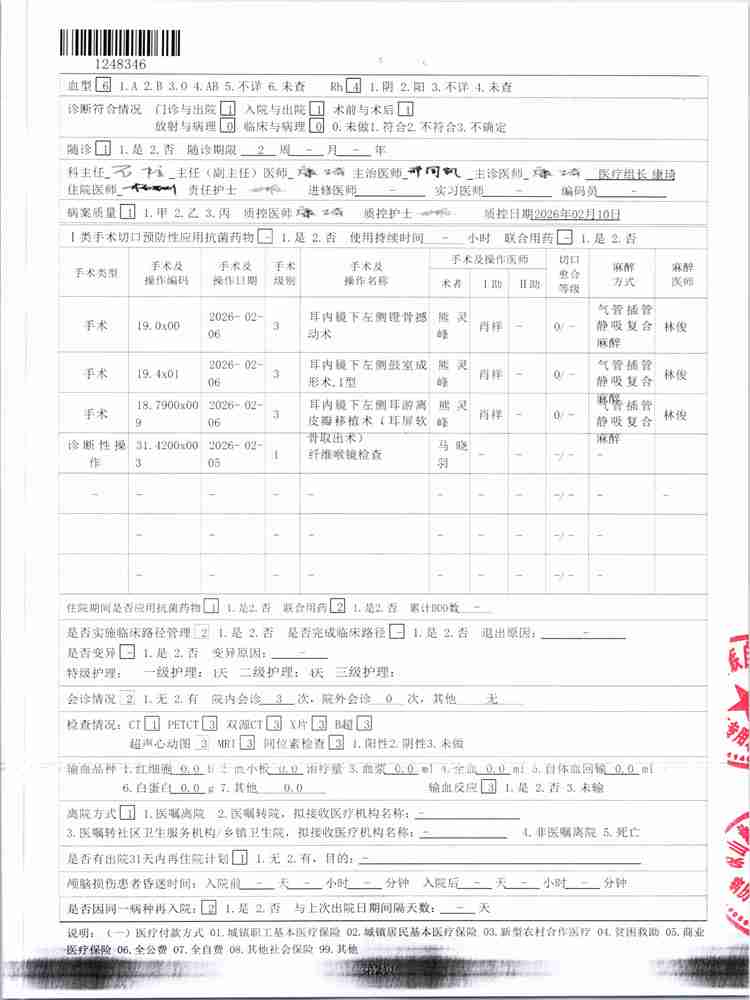 1248346
血型 6 1.A 2.B 3.O 4.AB 5.不详 6.未查 Rh 4 1.阴 2.阳 3.不详 4.未查
诊断符合情况 门诊与出院 1 入院与出院 1 术前与术后 1
放射与病理 0 临床与病理 0 0.未做1.符合2.不符合3.不确定
随诊 1 1.是 2.否 随诊期限 2 周 - 月 - 年
科主任 主任（副主任）医师 主治医师 主诊医师 医疗组长 康琦
住院医师 责任护士 进修医师 - 实习医师 - 编码员 -
病案质量 1 1.甲 2.乙 3.丙 质控医师 质控护士 质控日期2026年02月10日
Ⅰ类手术切口预防性应用抗菌药物 - 1.是 2.否 使用持续时间 - 小时 联合用药 - 1.是 2.否
手术类型 手术及操作编码 手术及操作日期 手术级别 手术及操作名称 手术及操作医师 术者 Ⅰ助 Ⅱ助 切口愈合等级 麻醉方式 麻醉医师
手术 19.0x00 2026-02-06 3 耳内镜下左侧镫骨撼动术 熊灵峰 肖祥 - 0/- 气管插管静吸复合麻醉 林俊
手术 19.4x01 2026-02-06 3 耳内镜下左侧鼓室成形术,Ⅰ型 熊灵峰 肖祥 - 0/- 气管插管静吸复合麻醉 林俊
手术 18.7900x009 2026-02-06 3 耳内镜下左侧耳游离皮瓣移植术（耳屏软骨取出术） 熊灵峰 肖祥 - 0/- 气管插管静吸复合麻醉 林俊
诊断性操作 31.4200x003 2026-02-05 1 纤维喉镜检查 马晓羽 - - -/- - -
- - - - - - - - -/- - -
- - - - - - -/- - -
- - - - - - -/- - -
住院期间是否应用抗菌药物 1 1.是2.否 联合用药 2 1.是2.否 累计DDD数 -
是否实施临床路径管理 2 1.是 2.否 是否完成临床路径 - 1.是 2.否 退出原因: -
是否变异 - 1.是 2.否 变异原因: -
特级护理: 一级护理: 1天 二级护理: 4天 三级护理:
会诊情况 2 1.无 2.有 院内会诊 3 次, 院外会诊 0 次, 其他 无
检查情况: CT 1 PETCT 3 双源CT 3 X片 3 B超 3
超声心动图 3 MRI 3 同位素检查 3 1.阳性2.阴性3.未做
输血品种 1.红细胞 0.0 U 2.血小板 0.0 治疗量 3.血浆 0.0 ml 4.全血 0.0 ml 5.自体血回输 0.0 ml
6.白蛋白 0.0 g 7.其他 0.0 输血反应 3 1.是 2.否 3.未输
离院方式 1 1.医嘱离院 2.医嘱转院，拟接收医疗机构名称: -
3.医嘱转社区卫生服务机构/乡镇卫生院，拟接收医疗机构名称: - 4.非医嘱离院 5.死亡
是否有出院31天内再住院计划 1 1.无 2.有, 目的: -
颅脑损伤患者昏迷时间: 入院前 - 天 - 小时 - 分钟 入院后 - 天 - 小时 - 分钟
是否因同一病种再入院: 2 1.是 2.否 与上次出院日期间隔天数: - 天
说明: （一）医疗付款方式 01.城镇职工基本医疗保险 02.城镇居民基本医疗保险 03.新型农村合作医疗 04.贫困救助 05.商业
医疗保险 06.全公费 07.全自费 08.其他社会保险 99.其他